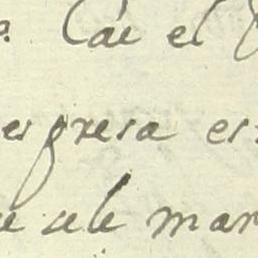 Cáe el
es presa es
e cele mar